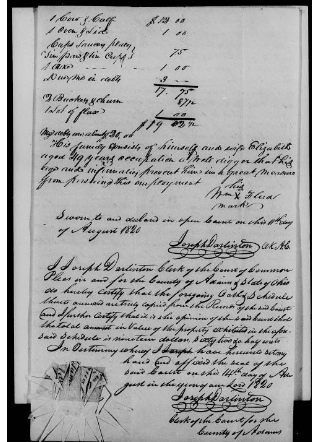 1 Cow & Calf $13 00
1 Oven & Lid 1 00
Cups Saucers plates
Tin pans & tin Cups 75
1 axe 1 00
Due me in debts 3
17. 75
3 Buckets & churn 87½
lot of flax 1 00
$19 62½
His family consists of himself and wife Elizabeth
aged 49 years occupation a well digger that his
age and infirmities prevent him in a great measure
from pursuing that employment
his
Wm X
mark
Sworn to and declared in open Court on this 14th day
of August 1820
Joseph Darlinton Clk
I Joseph Darlinton Clerk of the Court of Common
Pleas in and for the County of Adams & State of Ohio
do hereby certify that the foregoing Oath & Schedule
thereto annexed are truly copied from the Record of the said Court
and I further certify that it is the opinion of the said Court that
the total amount in Value of the property exhibited in the afore
said Schedule is nineteen dollars Sixty two & half cents
In Testimony whereof I have hereunto set my
hand and affixed the seal of the
said Court on this 14th day of Au
gust in the year of our Lord 1820
Joseph Darlinton
Clerk of the Court for the
County of Adams